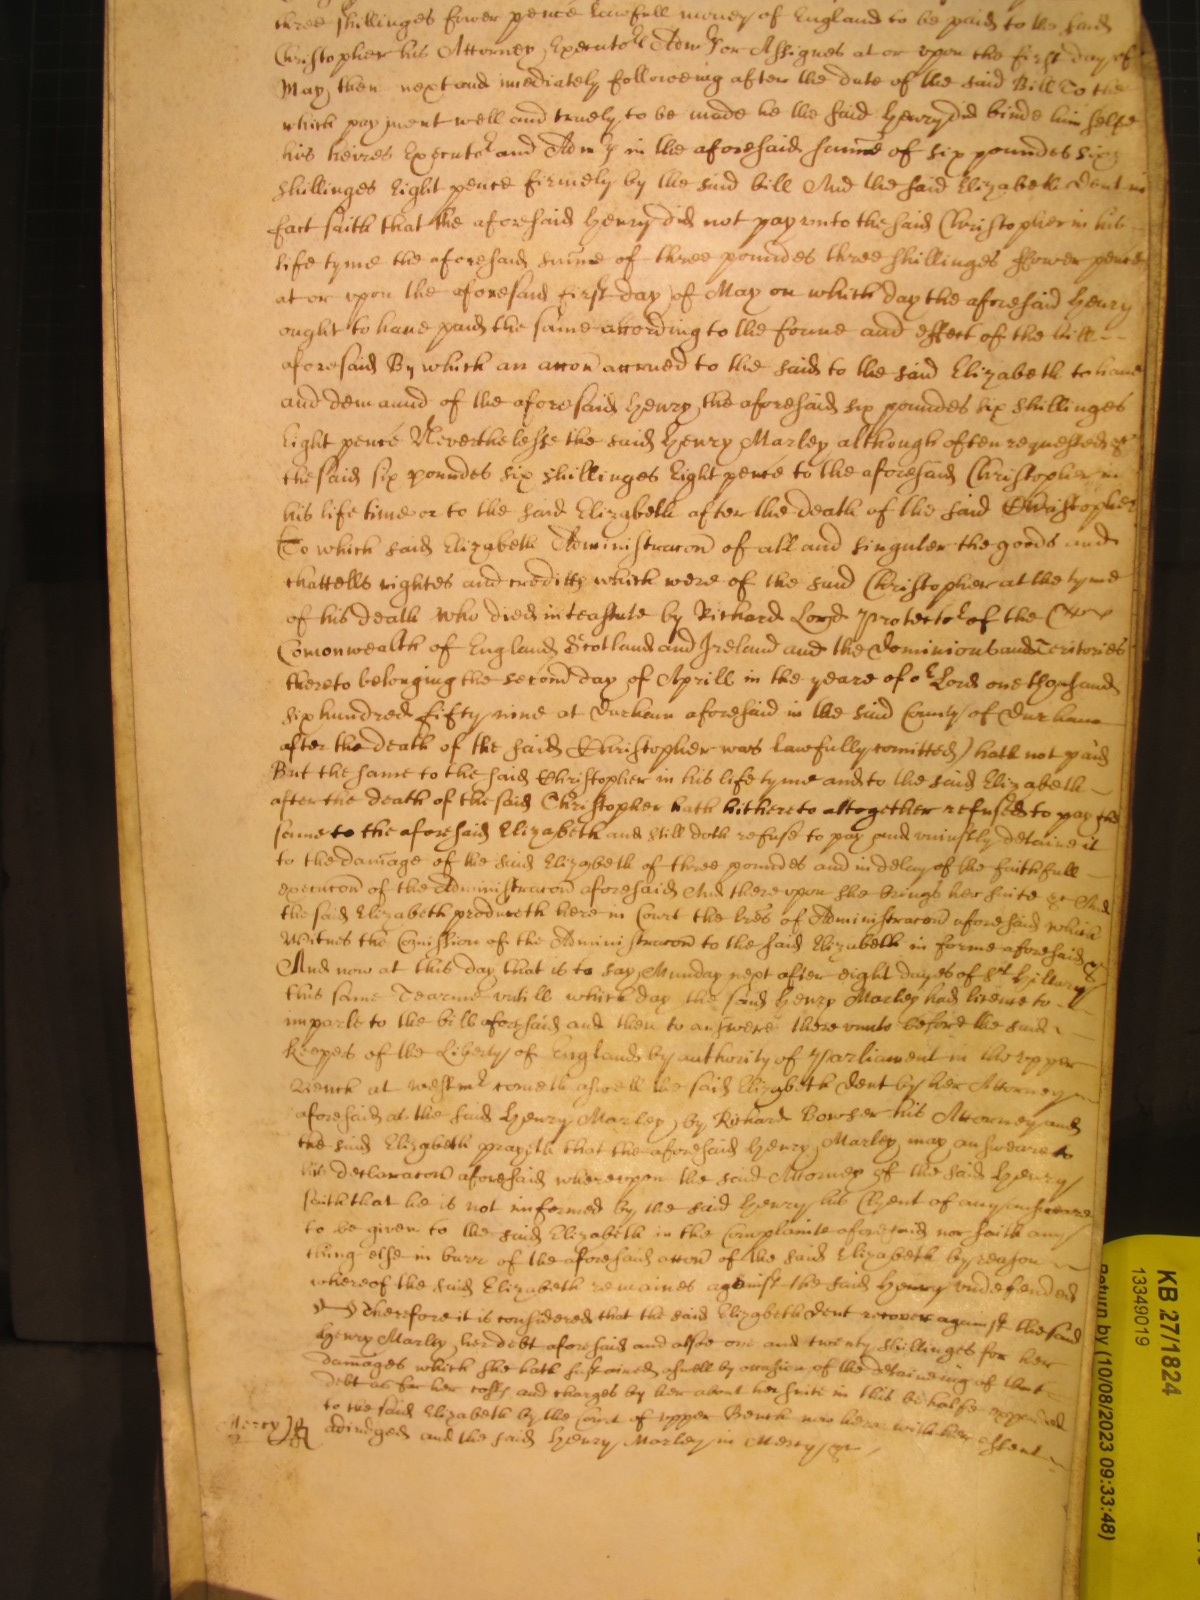 three shillinges fower pence lawfull money of England to be paid to the said
Christopher his Attorney Executors Admrs or Assignes at or vpon the first day of
May then next and imediately followeing after the date of the said Bill To the
which payment well and truely to be made he the said Henry did binde him selfe
his heires Executors and Admrs in the aforesaid sume of six poundes six
shillinges Eight pence firmely by the said bill And the said Elizabeth Dent in
fact saith that the aforesaid Henry did not pay vnto the said Christopher in his
life tyme the aforesaid sume of three poundes three shillinges ffower pence
at or vpon the aforesaid first day of May on which day the aforesaid Henry
ought to haue paid the same according to the forme and effect of the bill
aforesaid By which an accon accrued to the said to the said Elizabeth to haue
and demaund of the aforesaid Henry the aforesaid six poundes six shillinges
Eight pence Neverthelesse the said Henry Marley although often requested &c
the said six poundes six shillinges Eight pence to the aforesaid Christopher in
his life time or to the said Elizabeth after the death of the said Christopher
To which said Elizabeth Administracon of all and singuler the goods and
chattells rightes and creditts which were of the said Christopher at the tyme
of his death who died intestate by Richard Lord Protector of the
Comonwealth of England Scotland and Ireland and the Dominions and Teritories
thereto belonging the second day of Aprill in the yeare of or Lord one thousand
six hundred fifty nine at Durham aforesaid in the said County of Durham
after the death of the said Christopher was lawfully comitted) hath not paid
But the same to the said Christopher in his life tyme and to the said Elizabeth
after the death of the said Christopher hath hithereto altogether refused to pay the
same to the aforesaid Elizabeth and still doth refuse to pay and vniustly detaine it
to the damage of the said Elizabeth of three poundes and in delay of the faithfull
execucon of the Administracon aforesaid And therevpon she brings her suite &c And
the said Elizabeth produceth here in Court the lres of Administracon aforesaid which
Witnes the Comission of the Administracon to the said Elizabeth in forme aforesaid &c
And now at this day that is to say Munday next after eight dayes of St Hillary
this same Tearme vntill which day the said Henry Marley had licence to
imparle to the bill aforesaid and then to answere therevnto before the said
Keepers of the Liberty of England by authority of Parliament in the vpper
Bench at Westmr cometh aswell the said Elizabeth Dent by her Attorney
aforesaid as the said Henry Marley by Richard Bowser his Attorney and
the said Elizabeth prayeth that the aforesaid Henry Marley may answeare to
his declaracon aforesaid wherevpon the said Attorney of the said Henry
saith that he is not informed by the said Henry his Clyent of any answeare
to be given to the said Elizabeth in the Complainte aforesaid nor saith any
thing else in barr of the aforesaid accon of the said Elizabeth by reason
whereof the said Elizabeth remaines against the said Henry vndefended
Therefore it is considered that the said Elizabeth Dent recover against the said
Henry Marley her debt aforesaid and alsoe one and twenty shillinges for her
damages which she hath sustained aswell by occasion of the detaineing of that
debt as for her costs and charges by her about her suite in this behalfe expended
to the said Elizabeth by the Court of vpper Bench now here with her assent
Mercy adiudged and the said Henry Marley in Mercy &c
KB 27/1824
13349019
Return by (10/08/2023 09:33:48)